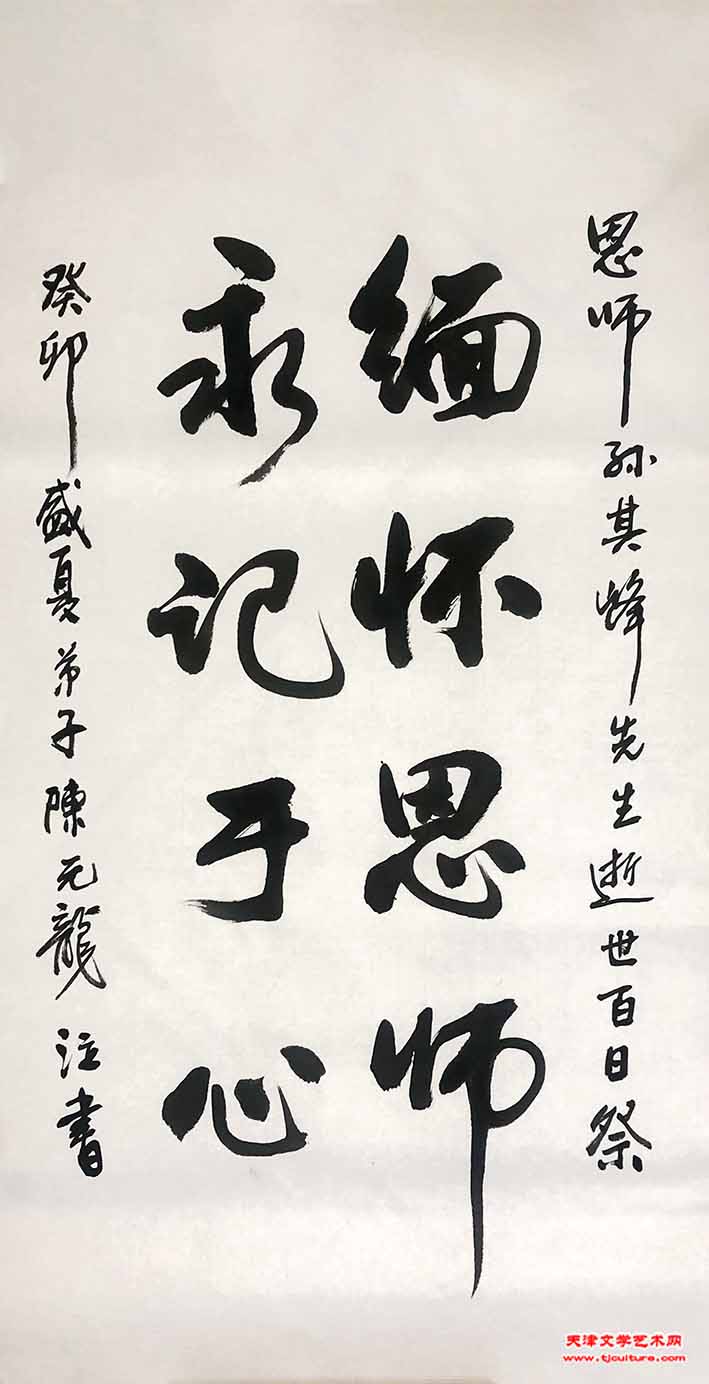 恩师孙其峰先生逝世百日祭
缅怀恩师
永记于心
癸卯盛夏弟子陳元龍泣書
天津文学艺术网
www.tjculture.com